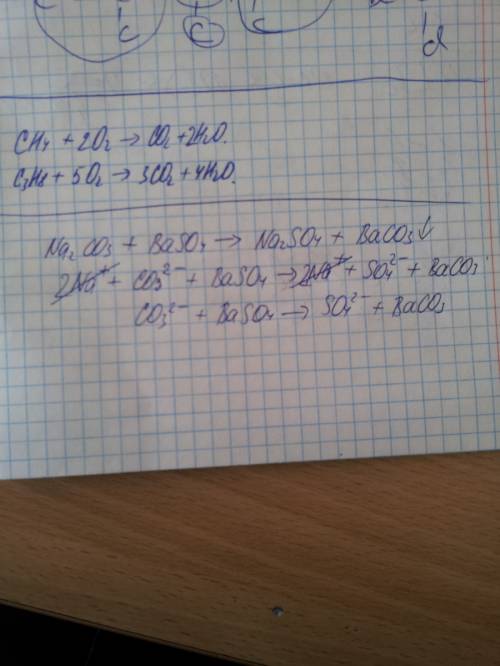 c c c
c d
CH₄ + 2O₂ → CO₂ + 2H₂O.
C₃H₈ + 5O₂ → 3CO₂ + 4H₂O.
Na₂CO₃ + BaSO₄ → Na₂SO₄ + BaCO₃↓
2Na⁺ + CO₃²⁻ + BaSO₄ → 2Na⁺ + SO₄²⁻ + BaCO₃
CO₃²⁻ + BaSO₄ → SO₄²⁻ + BaCO₃